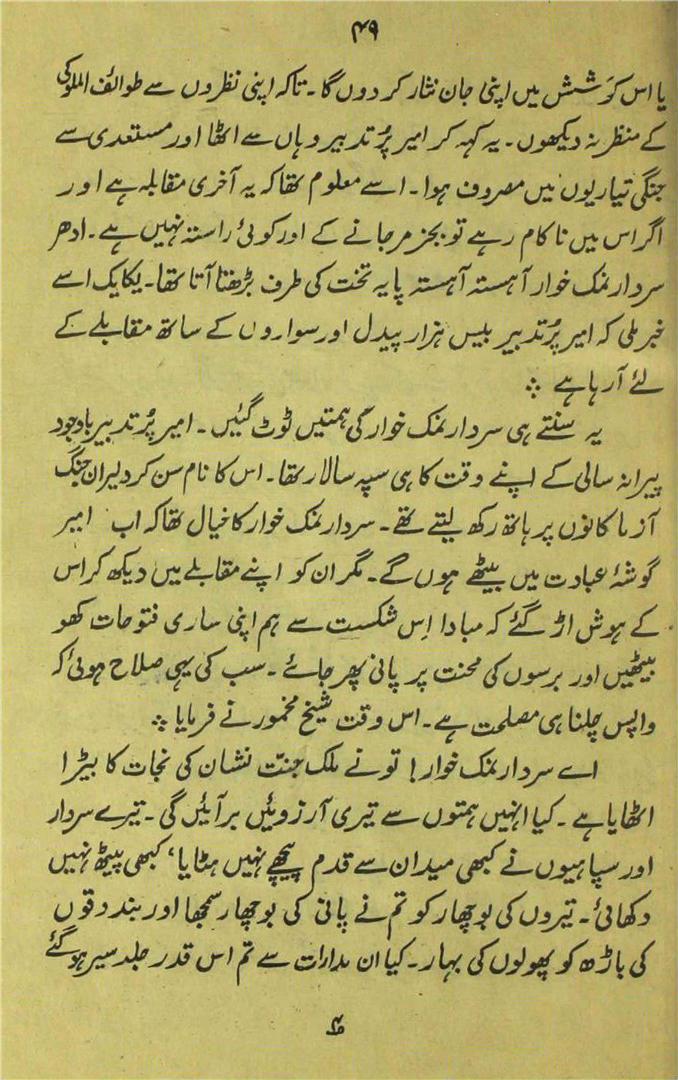 ۴۹
یا اس کوشش میں اپنی جان نثار کر دوں گا۔ تاکہ اپنی نظروں سے طوائف الملوکی
کے منظر نہ دیکھوں۔ یہ کہہ کر امیر پُر تدبیر وہاں سے اٹھا اور مستعدی سے
جنگی تیاریوں میں مصروف ہوا۔ اسے معلوم تھا کہ یہ آخری مقابلہ ہے اور
اگر اس میں ناکام رہے تو بجز مر جانے کے اور کوئی راستہ نہیں ہے۔ ادھر
سردار نمک خوار آہستہ آہستہ پایہ تخت کی طرف بڑھتا آتا تھا۔ یکایک اسے
خبر ملی کہ امیر پُر تدبیر بیس ہزار پیدل اور سواروں کے ساتھ مقابلے کے
لئے آ رہا ہے ⁘
یہ سنتے ہی سردار نمک خوار کی ہمتیں ٹوٹ گئیں۔ امیر پُر تدبیر باوجود
پیرانہ سالی کے اپنے وقت کا ہی سپہ سالار تھا۔ اس کا نام سن کر دلیران جنگ
آزما کانوں پر ہاتھ رکھ لیتے تھے۔ سردار نمک خوار کا خیال تھا کہ اب امیر
گوشۂ عبادت میں بیٹھے ہوں گے۔ مگر ان کو اپنے مقابلے میں دیکھ کر اس
کے ہوش اڑ گئے کہ مبادا اِس شکست سے ہم اپنی ساری فتوحات کھو
بیٹھیں اور برسوں کی محنت پر پانی پھر جائے۔ سب کی یہی صلاح ہوئی کہ
واپس چلنا ہی مصلحت ہے۔ اس وقت شیخ مخمور نے فرمایا ⁘
اے سردار نمک خوار! تو نے ملک جنّت نشان کی نجات کا بیڑا
اٹھایا ہے۔ کیا انہیں ہمتوں سے تیری آرزوئیں بر آئیں گی۔ تیرے سردار
اور سپاہیوں نے کبھی میدان سے قدم پیچھے نہیں ہٹایا، کبھی پیٹھ نہیں
دکھائی۔ تیروں کی بوچھار کو تم نے پانی کی بوچھار سمجھا اور بندوقوں
کی باڑھ کو پھولوں کی بہار۔ کیا ان مدارات سے تم اس قدر جلد سیر ہو گئے